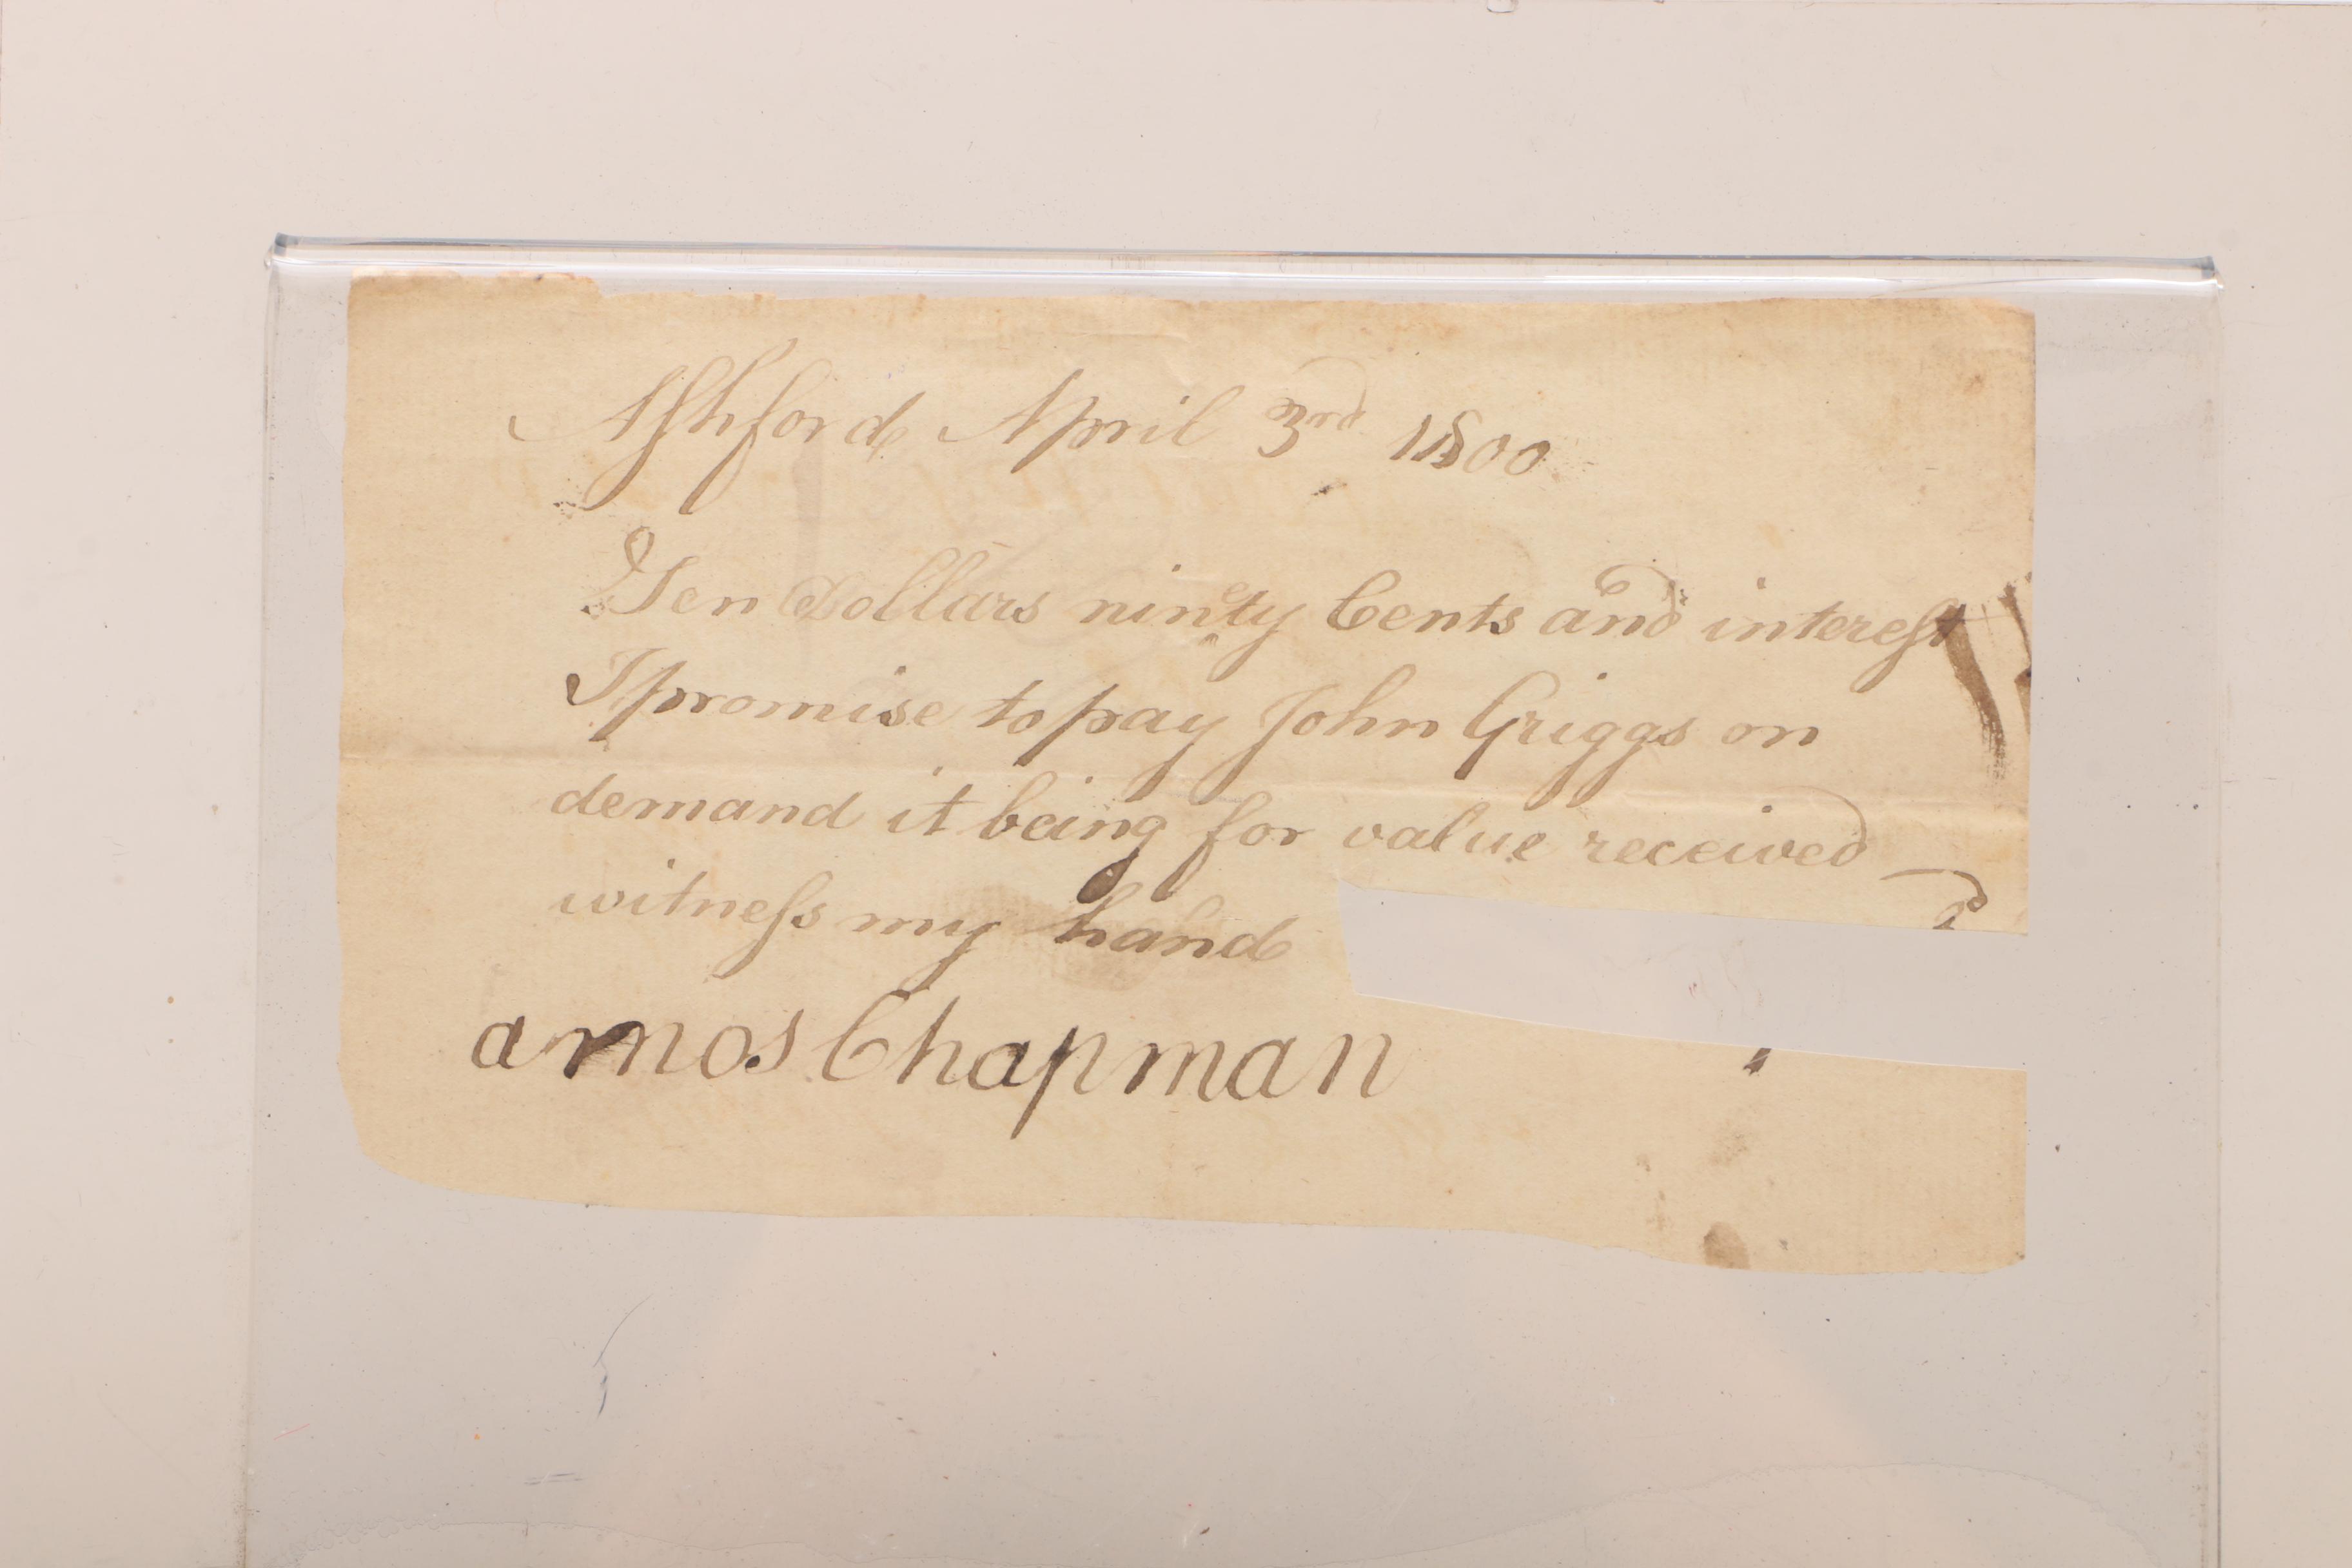 Ashford April 3rd 1800
Ten Dollars ninety Cents and interest
I promise to pay John Griggs on
demand it being for value received
witness my hand
amos Chapman